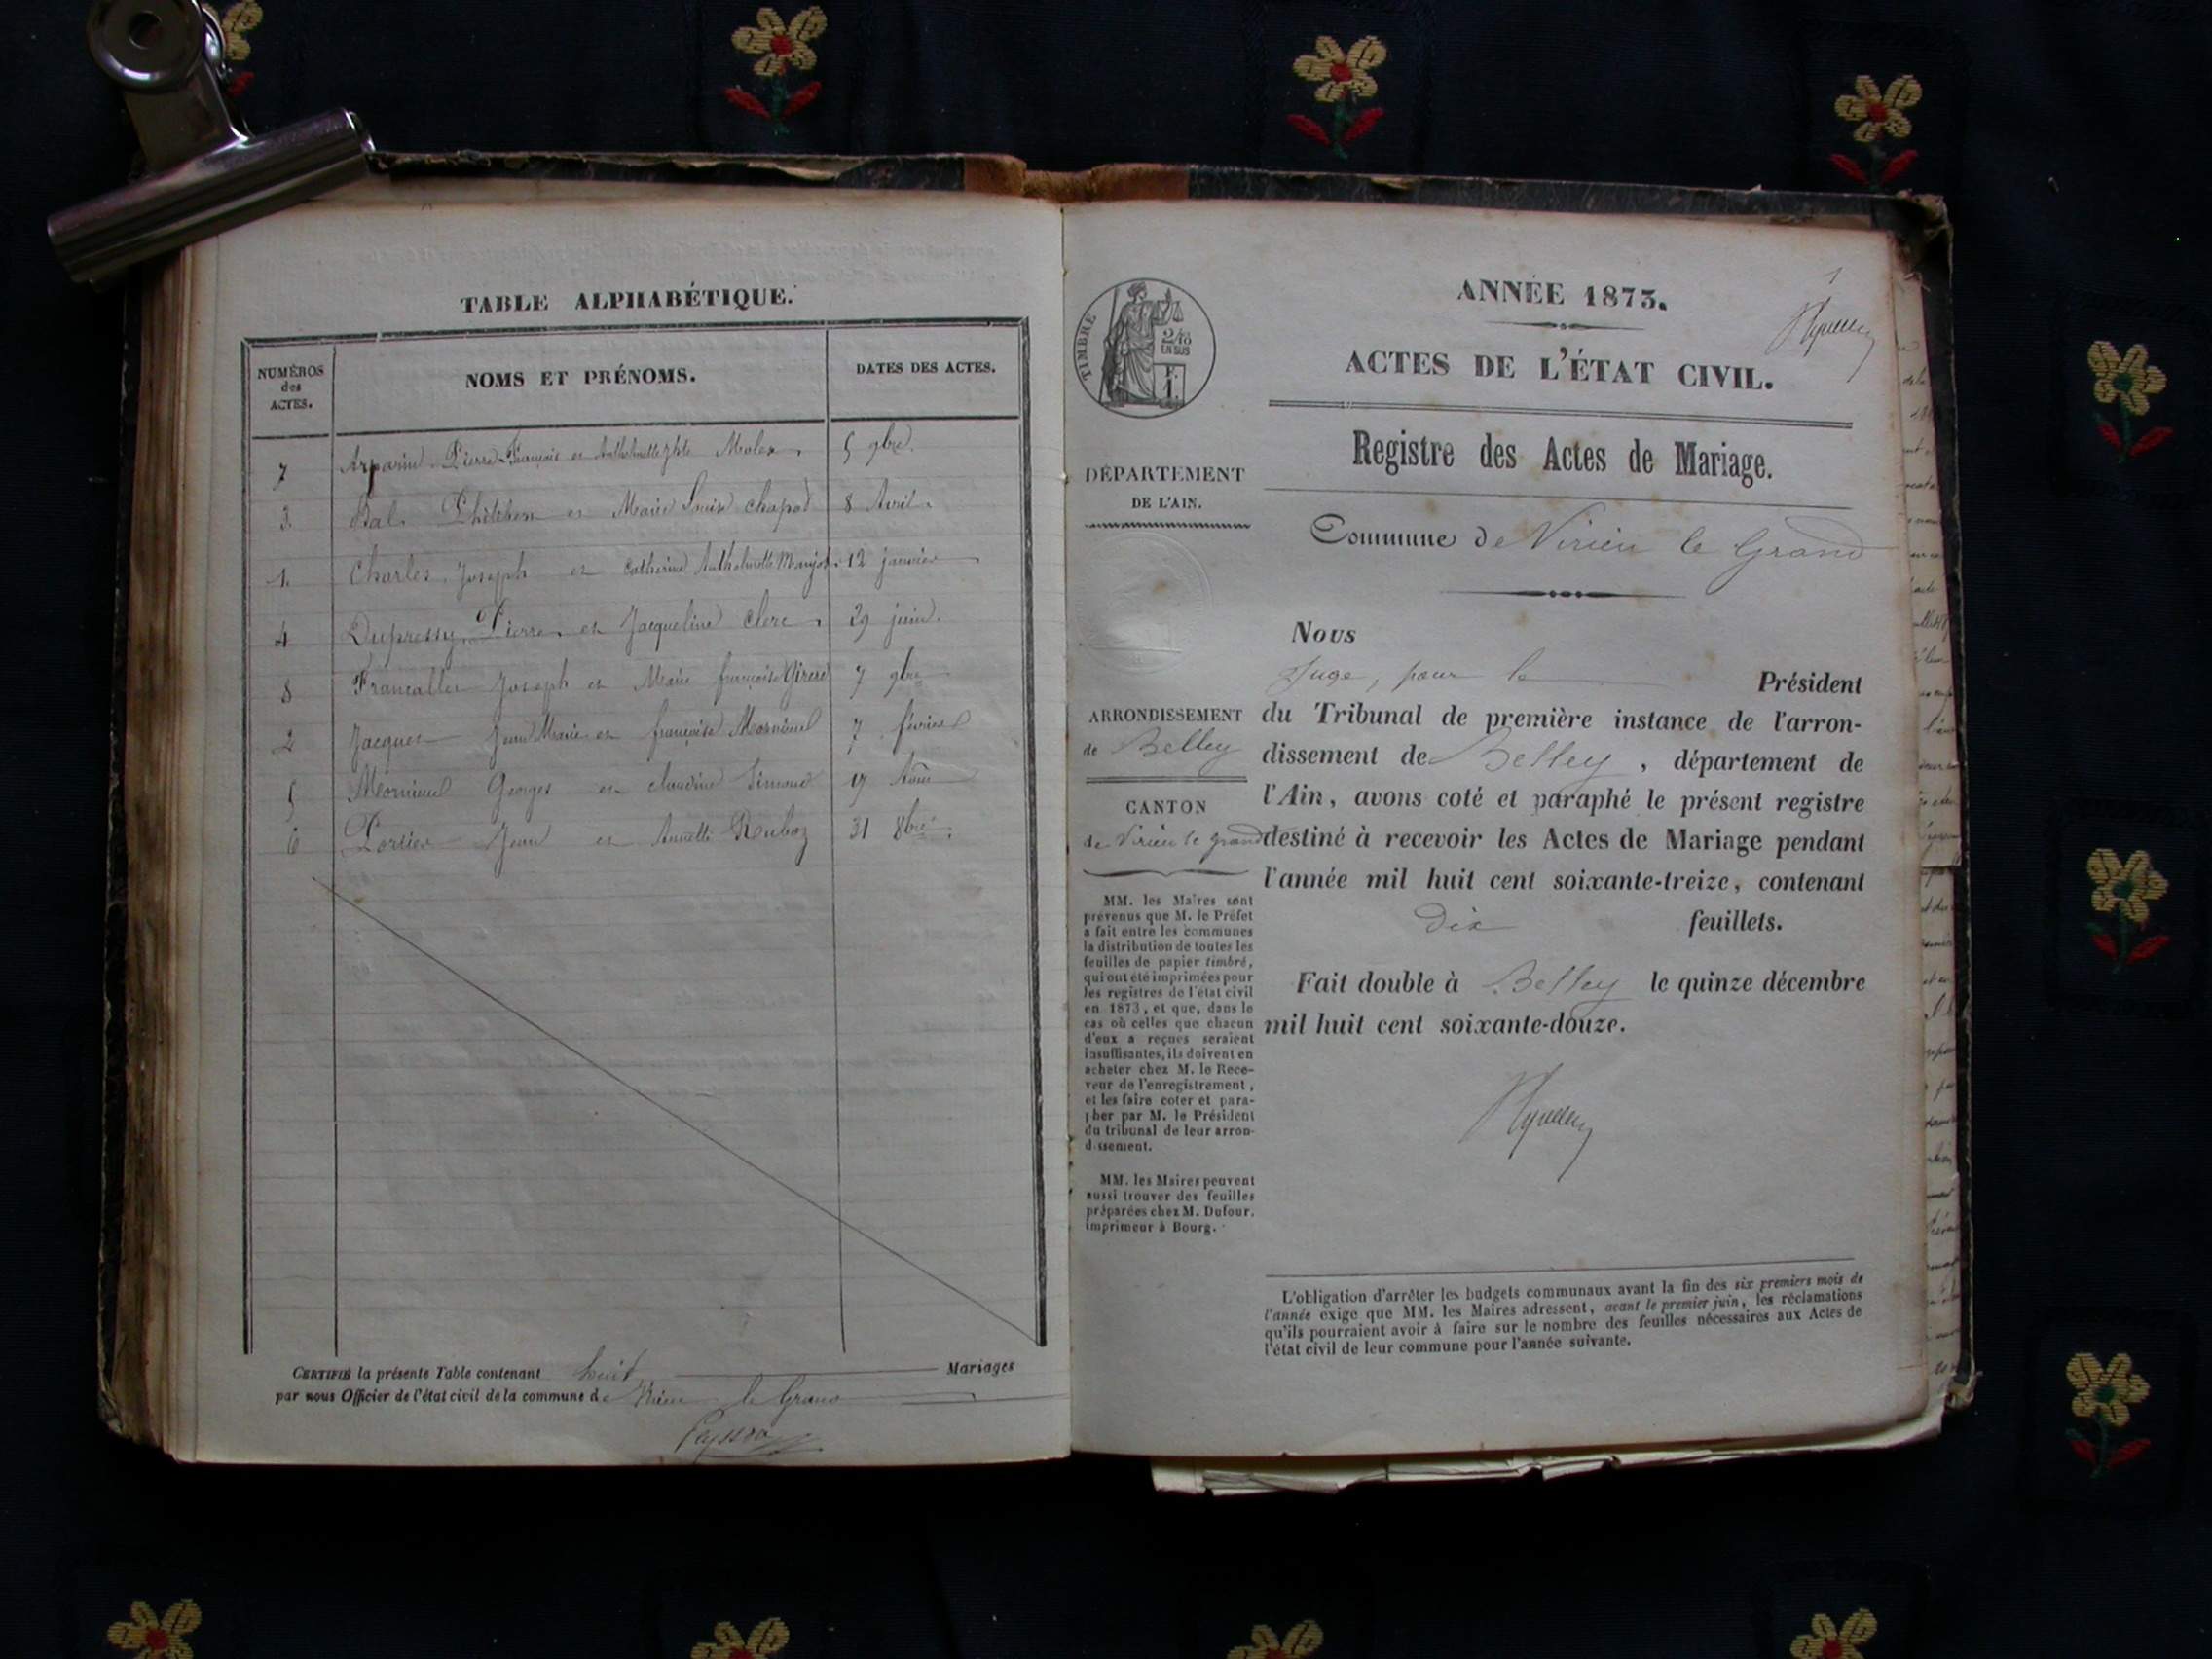 TABLE ALPHABÉTIQUE.
NUMÉROS
des
ACTES.
NOMS ET PRÉNOMS.
DATES DES ACTES.
7 Pierre François et Molex 5 9bre
3 Bal et Marie Louise Chapod 8 Avril
1 Charles Joseph et Catherine 12 janvier
4 Dupressy Pierre et Jacqueline Clerc 29 juin
8 Francallet Joseph et Marie françoise 7 9bre
2 Jacquet Jean Marie et françoise Mornieul 7 février
5 Mornieul Georges et claudine Simond
6 Portier Jean et Annette Ruboz 31 8bre
CERTIFIÉ la présente Table contenant huit Mariages
par nous Officier de l'état civil de la commune de Virieu le Grand
TIMBRE
2/10
EN SUS
F.
1.
1
ANNÉE 1873.
ACTES DE L'ÉTAT CIVIL.
Registre des Actes de Mariage.
DÉPARTEMENT
DE L'AIN.
Commune de Virieu le Grand
Nous
Juge, pour le Président
du Tribunal de première instance de l'arron-
dissement de Belley, département de
l'Ain, avons coté et paraphé le présent registre
destiné à recevoir les Actes de Mariage pendant
l'année mil huit cent soixante-treize, contenant
dix feuillets.
Fait double à Belley le quinze décembre
mil huit cent soixante-douze.
ARRONDISSEMENT
de Belley
CANTON
de Virieu le grand
MM. les Maires sont
prévenus que M. le Préfet
a fait entre les communes
la distribution de toutes les
feuilles de papier timbré,
qui ont été imprimées pour
les registres de l'état civil
en 1873, et que, dans le
cas où celles que chacun
d'eux a reçues seraient
insuffisantes, ils doivent en
acheter chez M. le Rece-
veur de l'enregistrement,
et les faire coter et para-
pher par M. le Président
du tribunal de leur arron-
dissement.
MM. les Maires peuvent
aussi trouver des feuilles
préparées chez M. Dufour,
imprimeur à Bourg.
L'obligation d'arrêter les budgets communaux avant la fin des six premiers mois de
l'année exige que MM. les Maires adressent, avant le premier juin, les réclamations
qu'ils pourraient avoir à faire sur le nombre des feuilles nécessaires aux Actes de
l'état civil de leur commune pour l'année suivante.